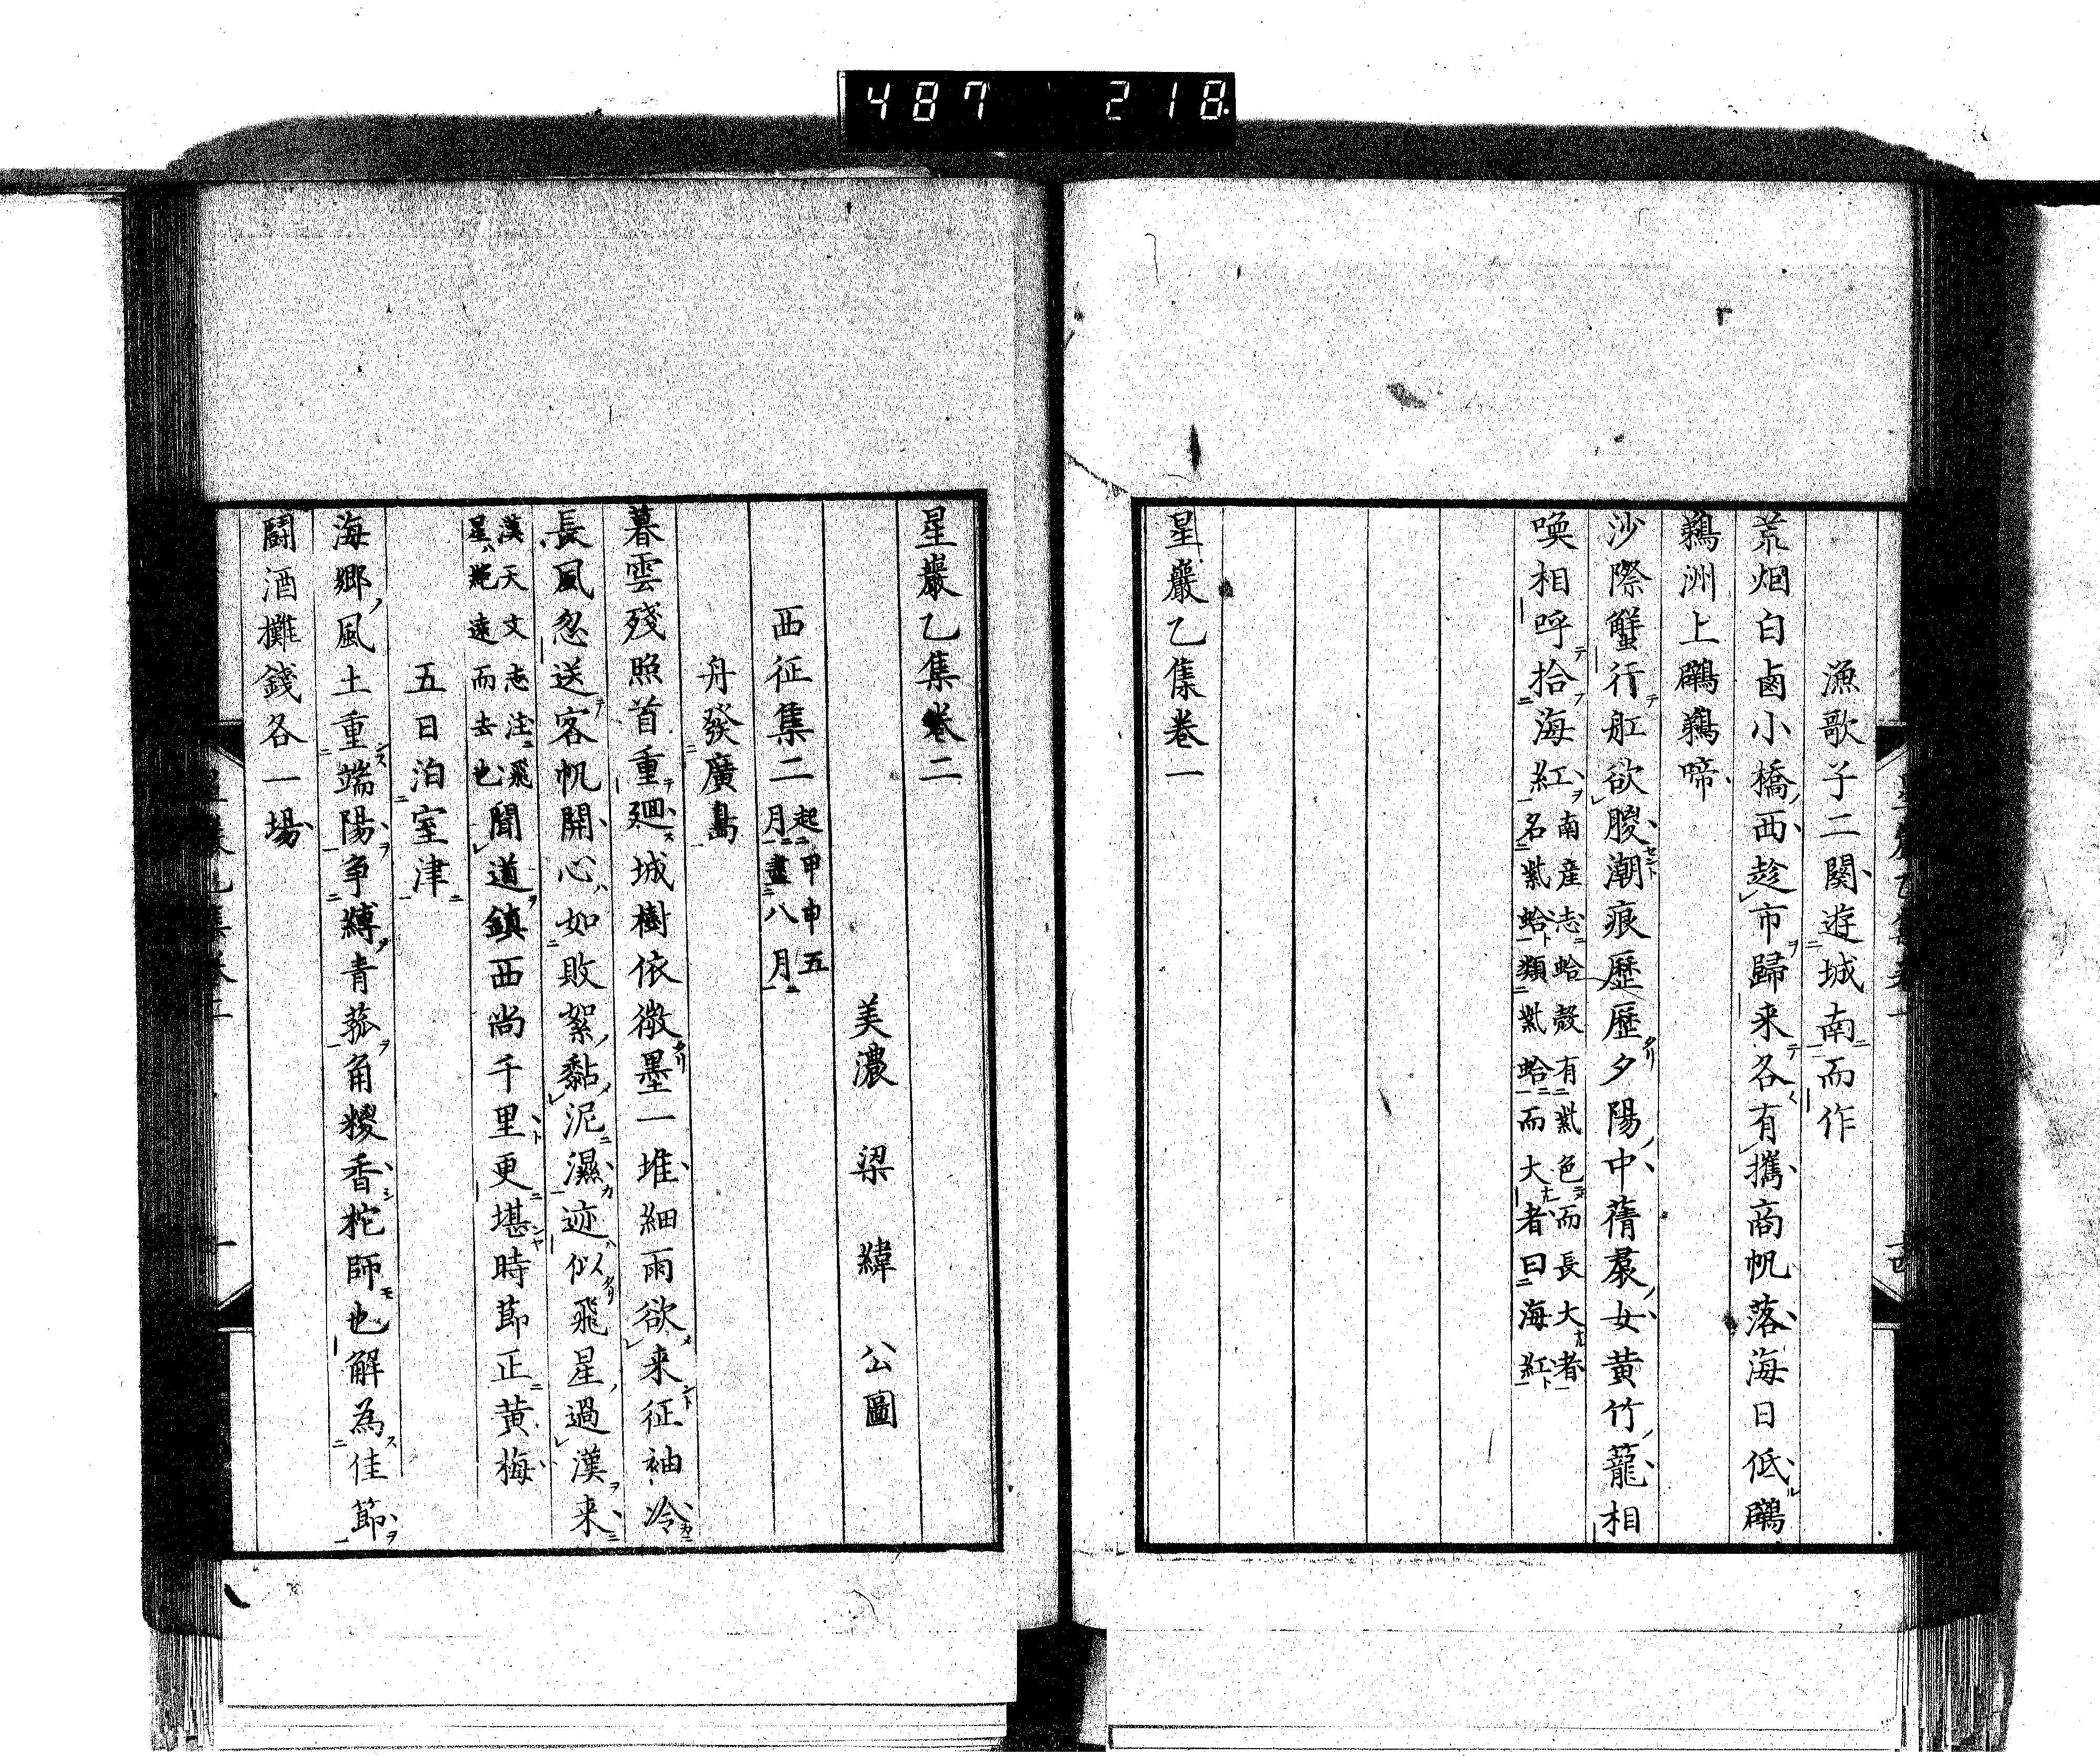 487 218
漁歌子二闋遊城南而作
荒烟白鹵小橋西趁市歸来各有攜商帆落海日低鸊
鷉洲上鸊鷉啼
沙際蟹行舡欲朡潮痕歷歷夕陽中蒨裠女黄竹籠相
喚相呼拾海紅
南産志蛤殻有紫色而長大者
名紫蛤類紫蛤而大者曰海紅
星巖乙集卷一
星巖乙集卷二
美濃 梁緯 公圖
西征集二
起甲申五
月盡八月
舟發廣島
暮雲殘照首重廻城樹依微墨一堆細雨欲来征袖冷
長風忽送客帆開心如敗絮黏泥濕迹似飛星過漢来
漢天文志注飛
星絶遠而去也
聞道鎮西尚千里更堪時節正黄梅
五日泊室津
海鄉風土重端陽争縛青菰角糉香柁師也解為佳節
鬪酒攤錢各一場